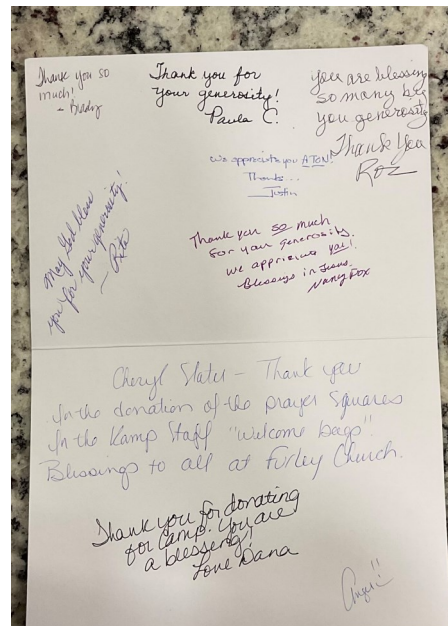 Thank you so
much!
- Brady
Thank you for
your generosity!
Paula C.
you are blessing
so many by
you generosity
Thank You
Roz
We appreciate you A TON!
Thanks...
Justin
May God bless
you for your generosity!
- Rita
Thank you so much
for your generosity.
We appriciate you!
Blessings in Jesus.
Nancy Dox
Cheryl Slater - Thank you
for the donation of the prayer squares
for the Kamp Staff "welcome bags".
Blessings to all at Furley Church.
Thank you for donating
for camp. You are
a blessing!
Love Dana